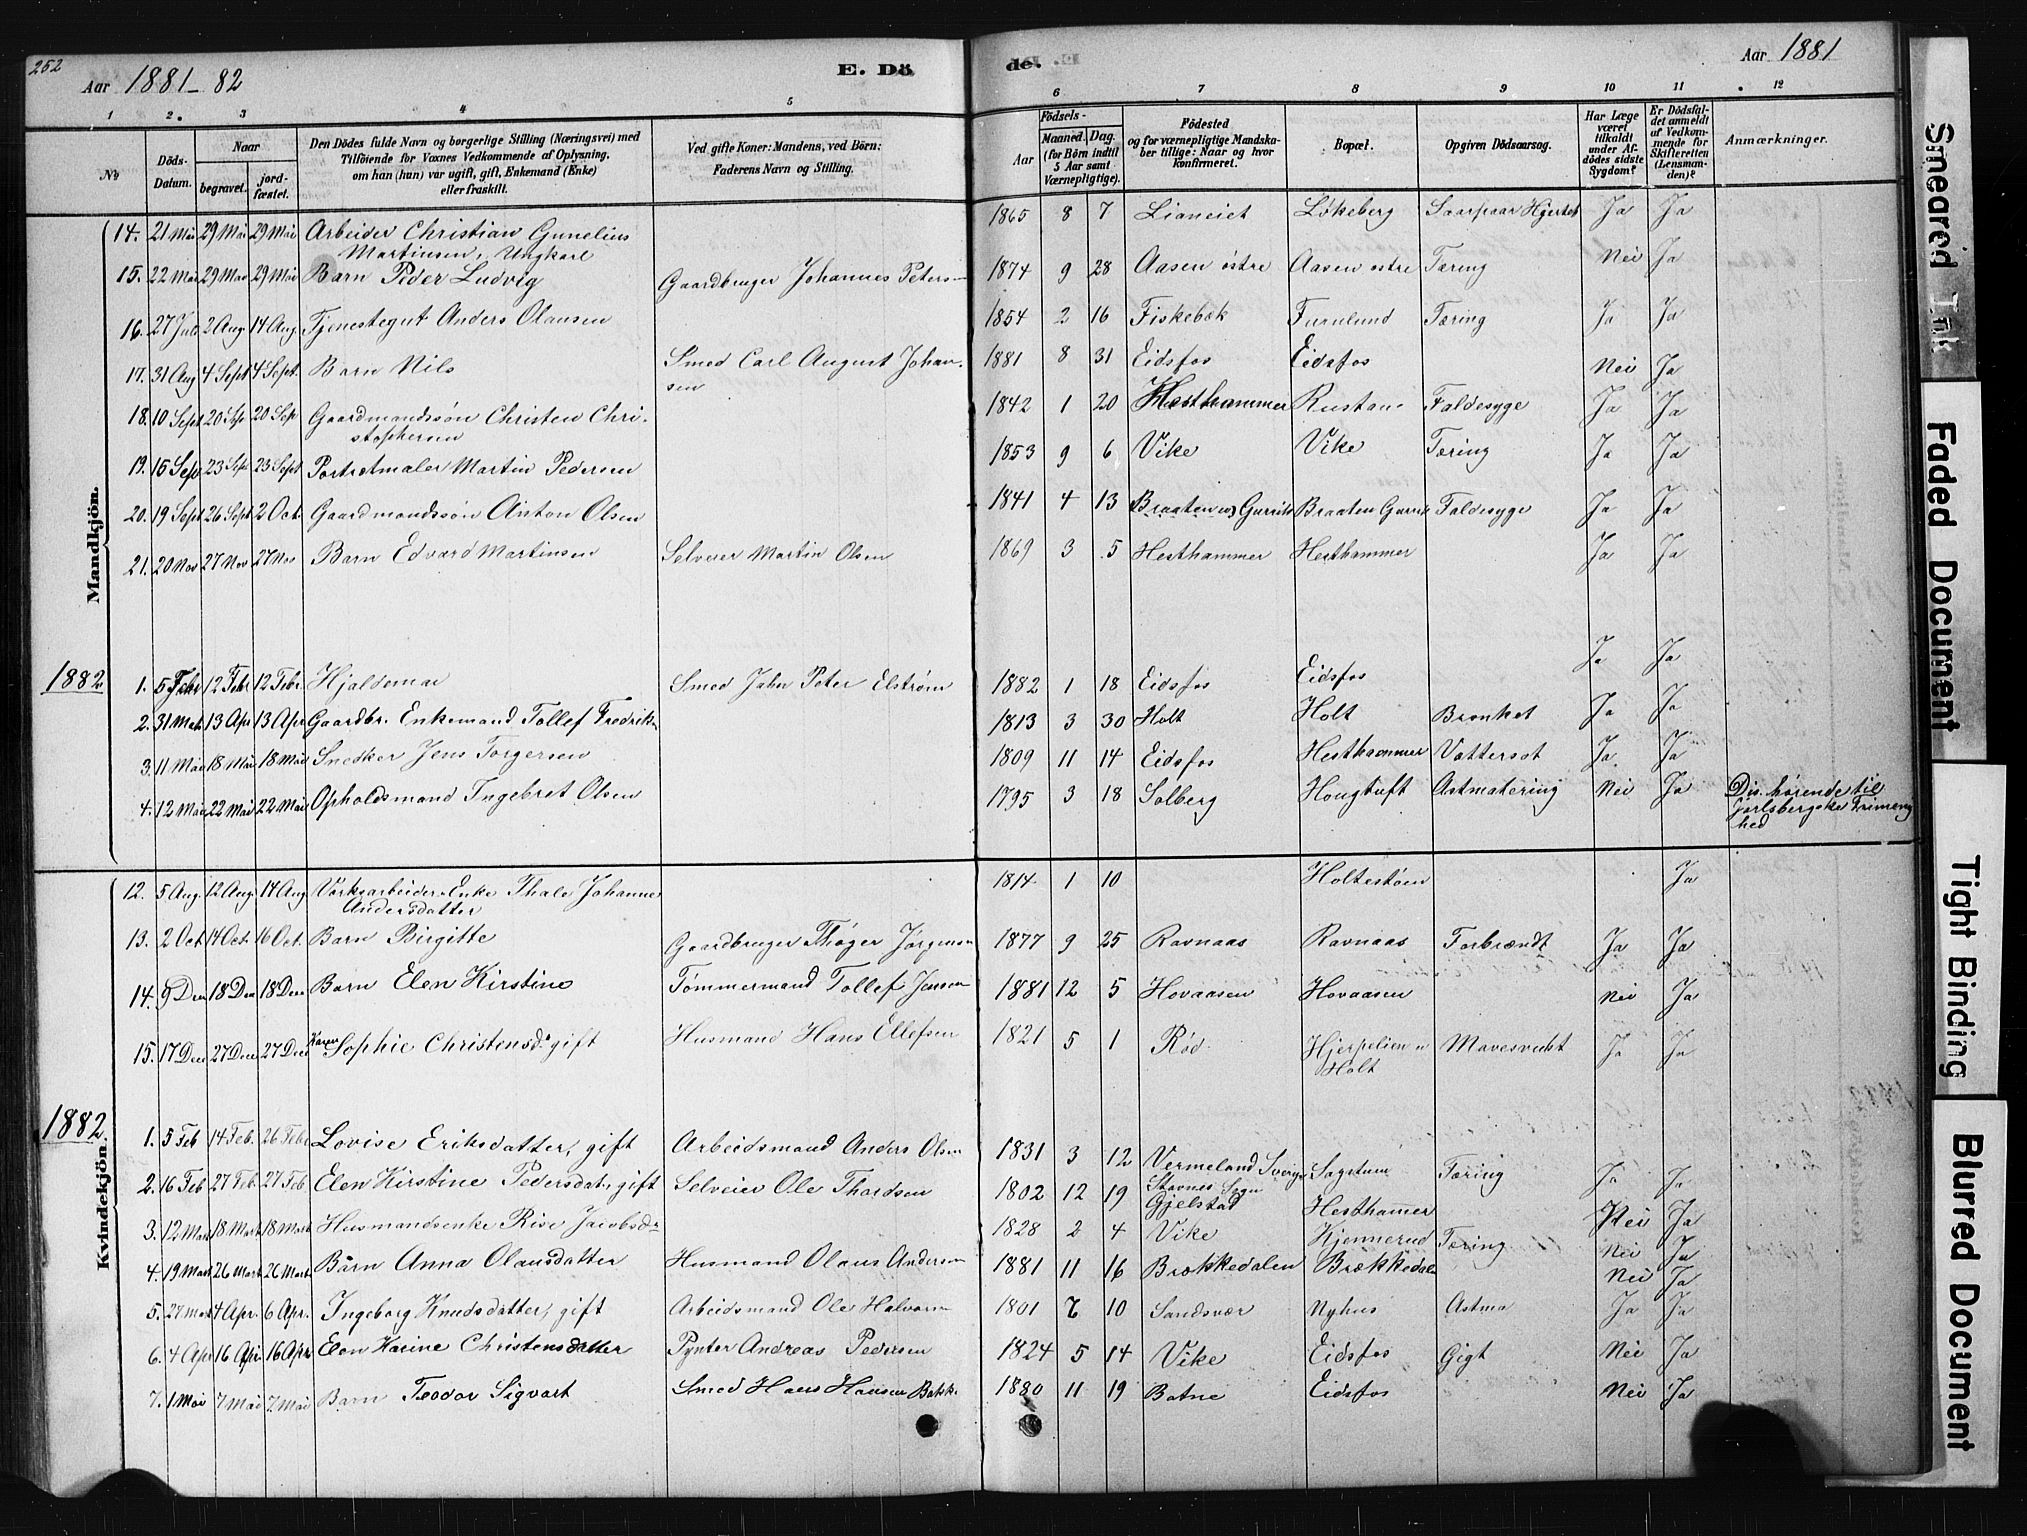 252
Aar 1881-82
E. Dö
de.
Aar 1881
1 2. 3 4 5 6 7 8 9 10 11 12
No
Döds-Datum.
Naar
begravet.
jord-fæstet.
Den Dödes fulde Navn og borgerlige Stilling (Næringsvei) med
Tilföiende for Voxnes Vedkommende af Oplysning,
om han (hun) var ugift, gift, Enkemand (Enke)
eller fraskilt.
Ved gifte Koner: Mandens, ved Börn:
Faderens Navn og Stilling.
Födsels-
Aar
Maaned. Dag.
(for Börn indtil
5 Aar samt
Værnepligtige).
Födested
og for værnepligtige Mandska-
ber tillige: Naar og hvor
konfirmeret.
Bopæl.
Opgiven Dödsaarsag.
Har Læge
været
tilkaldt
under Af-
dödes sidste
Sygdom?
Er Dödsfal-
det anmeldt
af Vedkom-
mende for
Skifteretten
(Lensman-
den)?
Anmærkninger.
Mandkjön.
14. 21 Mai 29 Mai 29 Mai Arbeider Christian Gunelius Martinsen, Ungkarl 1865 8 7 Lianeiet Løkeberg Ja Ja
15. 22 Mai 29 Mai 29 Mai Barn Peder Ludvig Gaardbruger Johannes Petersen 1874 9 28 Aasen østre Aasen østre Tæring Nei Ja
16. 27 Juli 2 Aug 14 Aug. Tjenestegut Anders Olausen 1854 2 16 Fiskebæk Furulund Tæring Ja Ja
17. 31 Aug 4 Sept 4 Sept. Barn Nils Smed Carl August Johansen 1881 8 31 Eidsfos Eidsfos Nei Ja
18. 10 Sept 20 Sep 20 Sep Gaardmandssøn Christen Christophersen 1842 1 20 Hesthammer Rustan Faldesyge Ja Ja
19. 15 Sep 23 Sep 23 Sept Portretmaler Martin Pedersen 1853 9 6 Vike Vike Tæring Ja Ja
20. 19 Sept 26 Sept 2 Oct. Gaardmandssøn Anton Olsen 1841 4 13 Braaten Braaten Faldesyge Ja Ja
21. 20 Nov 27 Nov 27 Nov Barn Edvard Martinsen Selveier Martin Olsen 1869 3 5 Hesthammer Hesthammer Ja Ja
1882
1. 5 Febr 12 Febr 12 Febr. Hjaldemar Smed John Peter Elstrøm 1882 1 18 Eidsfos Eidsfos Ja Ja
2. 31 Mart 13 Apr 13 Apr Gaardbr. Enkemand Tollef Fredriks. 1813 3 30 Holt Holt Bronket Ja Ja
3. 11 Mai 18 Mai 18 Mai Snedker Jens Torgersen 1809 11 14 Eidsfos Hesthammer Vattersot Ja. Ja
4. 12 Mai 22 Mai 22 Mai Opholdsmand Ingebret Olsen 1795 3 18 Solberg Hougtuft Astmatering Nei Ja Dis. hørende til Jarlsbergske Frimenighed
Kvindekjön.
12. 5 Aug 12 Aug 14 Aug Værksarbeider-Enke Thale Johanne Andersdatter 1814 1 10 Holtestøen Ja
13. 2 Oct. 14 Oct. 16 Oct. Barn Birgitte Gaardbruger Thøger Jørgensen 1877 9 25 Ravnaas Ravnaas Forbrændt Ja Ja
14. 9 Dec 18 Dec 18 Dec Barn Elen Kirstine Tømmermand Tollef Jensen 1881 12 5 Hovaasen Hovaasen Nei Ja
15. 17 Dec 27 Dec 27 Dec Karen Sophie Christensd. gift Husmand Hans Ellefsen 1821 5 1 Rød. Hjerpelien u Holt Mavesvekt Ja Ja
1882
1. 5 Feb 14 Feb. 26 Febr Lovise Eriksdatter, gift Arbeidsmand Anders Olsen 1831 3 12 Vermeland Sverige Stavnes Sogn Sagstuen Tæring Ja Ja
2. 16 Feb 27 Feb. 27 Feb Elen Kirstine Pedersdat., gift Selveier Ole Thordsen 1802 12 19 Gjelstad Hesthammer Nei Ja
3. 12 Mart 18 Mart 18 Mart Husmandsenke Rise Jacobsd. 1828 2 4 Vike Kjennerud Tæring Nei Ja
4. 19 Mart 26 Mart 26 Mart. Barn Anna Olausdatter Husmand Olaus Andersen 1881 11 16 Brækkedalen Brækkedalen Nei Ja
5. 27 Mart 4 Apr. 6 Apr. Ingeborg Knudsdatter, gift Arbeidsmand Ole Halvorsen 1801 7 10 Sandsvær Nyhus Astma Ja Ja
6. 4 Apr 16 Apr. 16 Apr. Elen Karine Christensdatter Pynter Andreas Pedersen 1824 5 14 Vike Eidsfos Gigt Nei Ja
7. 1 Mai 7 Mai 7 Mai Barn Teodor Sigvart Smed Hans Hansen Bakk. 1880 11 19 Botne Eidsfos Nei Ja
Smeared Ink
Faded Document
Tight Binding
Blurred Document